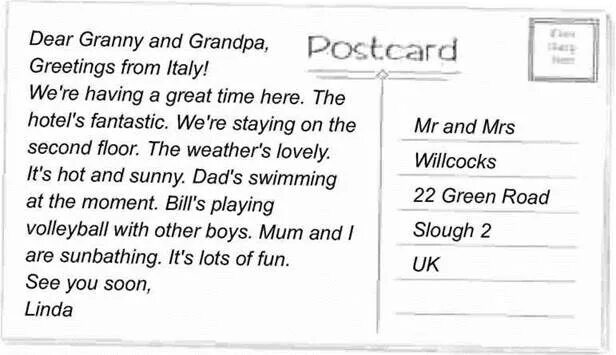 Dear Granny and Grandpa,
Greetings from Italy!
We're having a great time here. The
hotel's fantastic. We're staying on the
second floor. The weather's lovely.
It's hot and sunny. Dad's swimming
at the moment. Bill's playing
volleyball with other boys. Mum and I
are sunbathing. It's lots of fun.
See you soon,
Linda
Postcard
Mr and Mrs
Willcocks
22 Green Road
Slough 2
UK